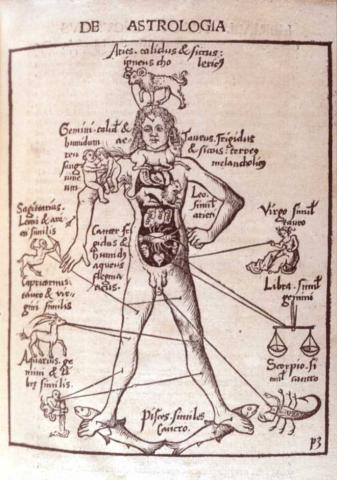 DE ASTROLOGIA
Aries calidus & siccus:
igneus cho
lericꝰ
Gemini. calid' &
humidum ae
reu
sang
uine
um
Taurus. frigidus
& siccus: terreꝰ
melancholicꝰ
Leo.
simil'
arieti
Sagitarius.
Leoni & ari
eti similis
Cancer fri
gidus &
humidꝰ
aqueus
flegma
ticus.
Virgo simil'
tauro
Capricornus.
tauro & vir
gini similis
Libra. simil'
gemini
Aquarius. ge
mini & li
bre similis.
Scorpio. si
mil' cancro
Pisces. similes
Cancro.
p3